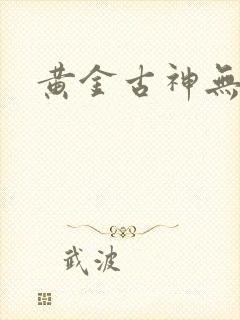 黃金古神無
武波